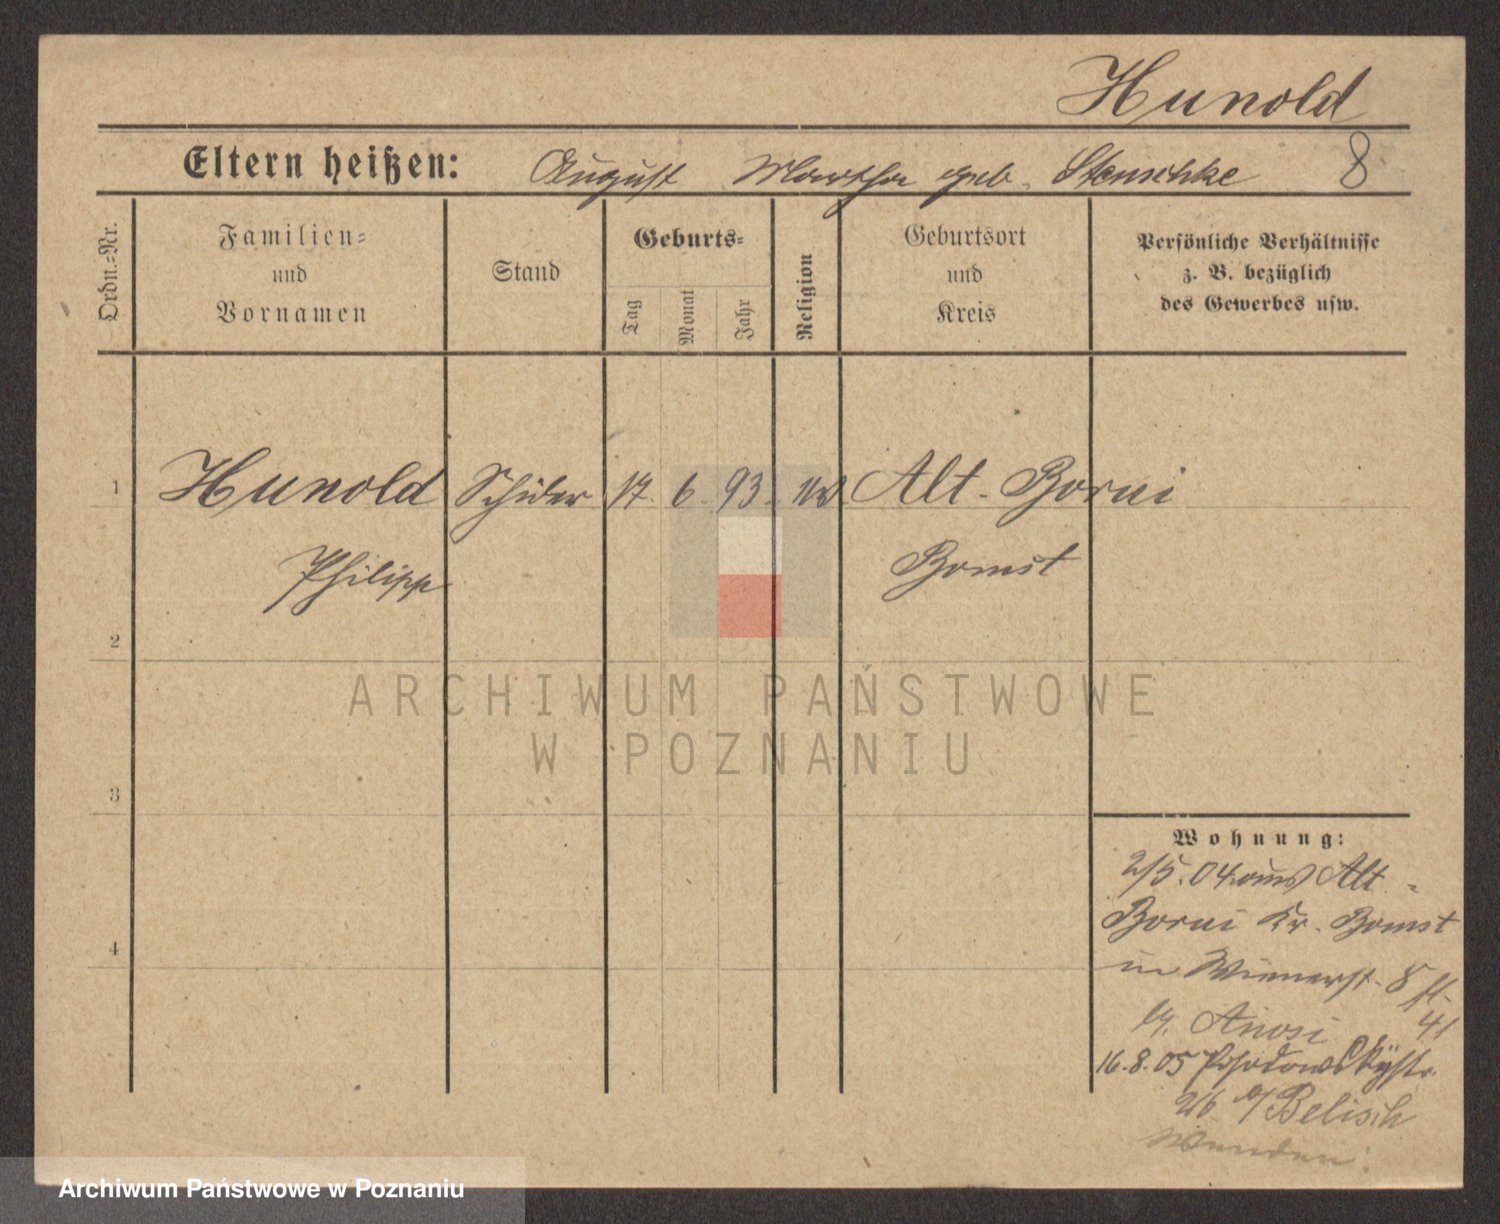 Hunold
Eltern heißen: August Martha geb. Stenschke 8
Ordn.-Nr.
Familien-
und
Vornamen
Stand
Geburts-
Tag
Monat
Jahr
Religion
Geburtsort
und
Kreis
Persönliche Verhältnisse
z. B. bezüglich
des Gewerbes usw.
1 Hunold Schüler 17. 6. 93. Alt-Borui
Philipp Bomst
2
ARCHIWUM PAŃSTWOWE
W POZNANIU
3
Wohnung:
2/5. 04 aus Alt-
Borui Kr. Bomst
4
8
41
16.8.05
Belisch
Wenden!
Archiwum Państwowe w Poznaniu